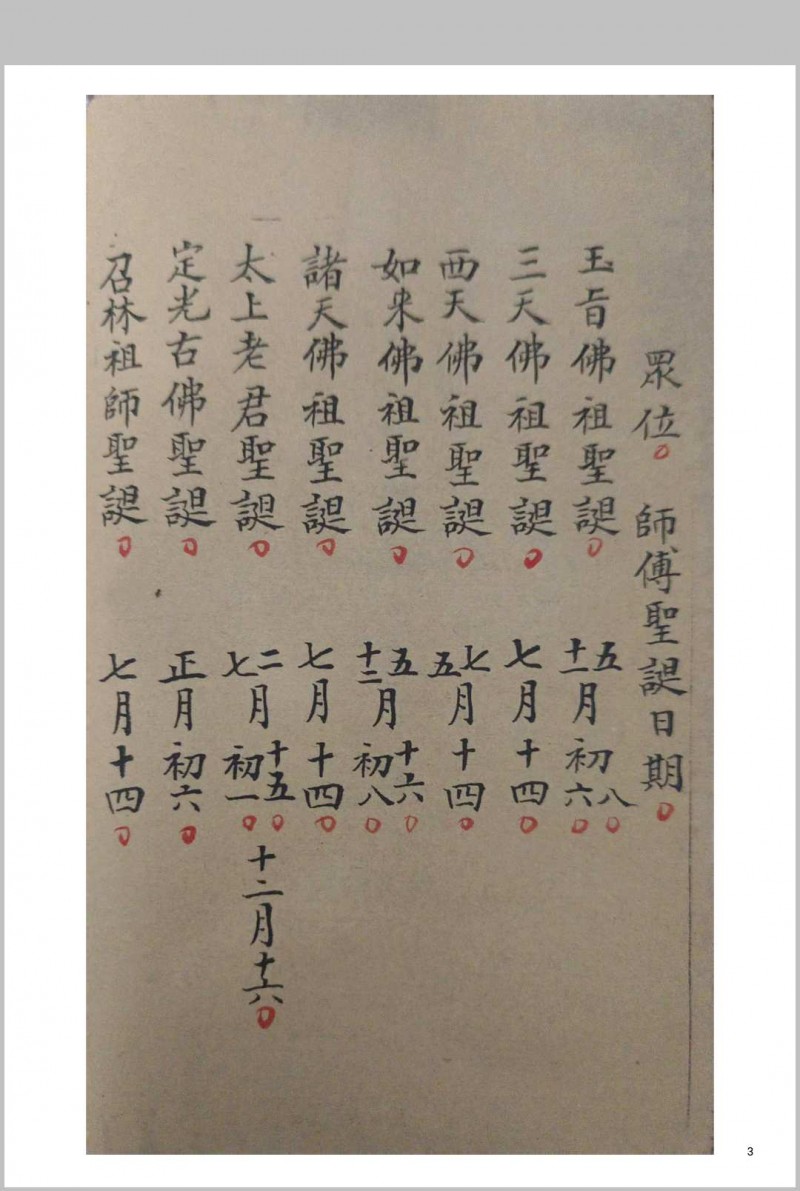 眾位 師傅聖誕日期
玉旨佛祖聖誕 五十一月初八六
三天佛祖聖誕 七月十四
西天佛祖聖誕 七五月十四
如来佛祖聖誕 五十二月十六初八
諸天佛祖聖誕 七月十四
太上老君聖誕 二七月十五初一 十二月十六
定光古佛聖誕 正月初六
召林祖師聖誕 七月十四
3